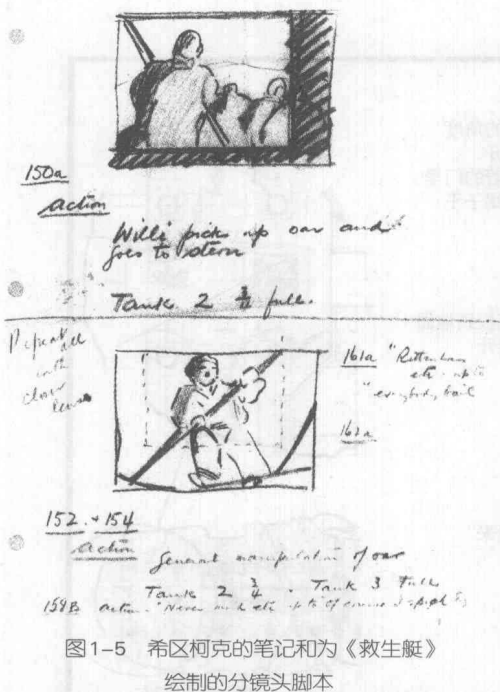 150a
action
Willi pick up oar and
goes to stern
Tank 2 3/4 full.
Repeat all
with
closer
lens
161a "Rittenhaus
etc. up to
"everybody bail
162a
152. + 154
action
General manipulation of oar
Tank 2 3/4 . Tank 3 full
159B action "Never etc up to of
图1-5 希区柯克的笔记和为《救生艇》
绘制的分镜头脚本